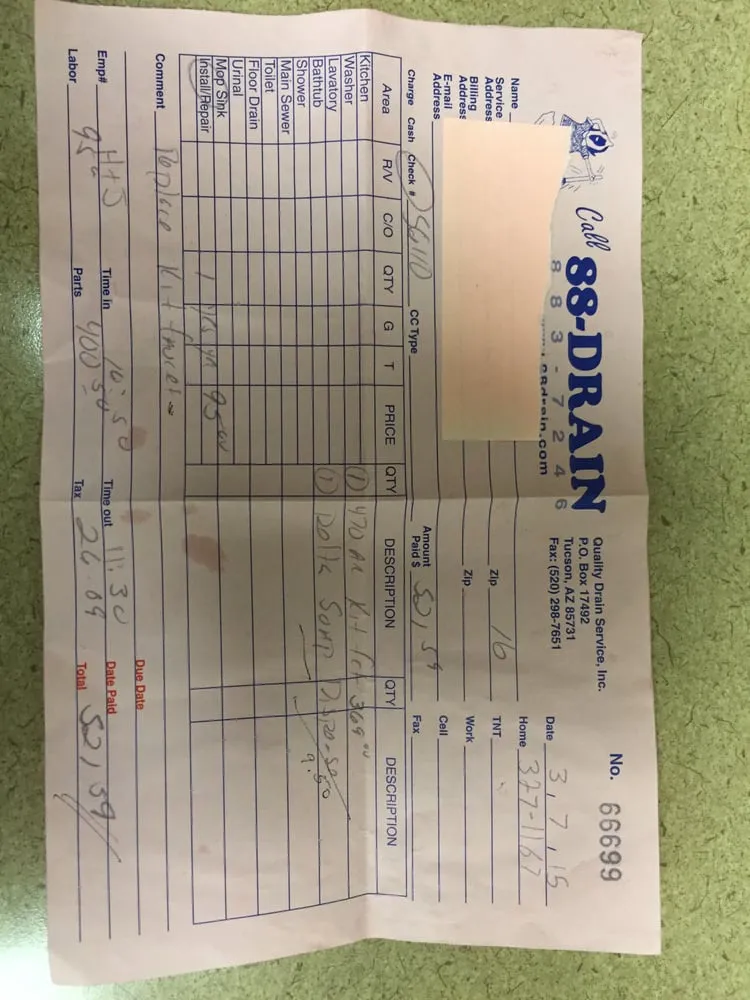 Call 88-DRAIN
8 8 3 - 7 2 4 6
88drain.com
Quality Drain Service, Inc.
P.O. Box 17492
Tucson, AZ 85731
Fax: (520) 298-7651
No. 66699
Date 3, 7, 15
Name
Home 327-1167
Service Address
Zip 16
TNT
Billing Address
Zip
Work
E-mail Address
Cell
Charge Cash Check #
CC Type
Amount Paid $ 521, 59
Fax
Area R/V C/O QTY G T PRICE QTY DESCRIPTION QTY DESCRIPTION
Kitchen (1) Kit fct 369 00
Washer
Lavatory (1) Delta Soap 9.50
Bathtub
Shower
Main Sewer
Toilet
Floor Drain
Urinal
Mop Sink
Install/Repair 1 95 00
Comment Replace Kit faucet
Due Date
Emp# H+J Time in 10:50 Time out 11:30 Date Paid
Labor 95 Parts 400 50 Tax 26.09 Total 521, 59